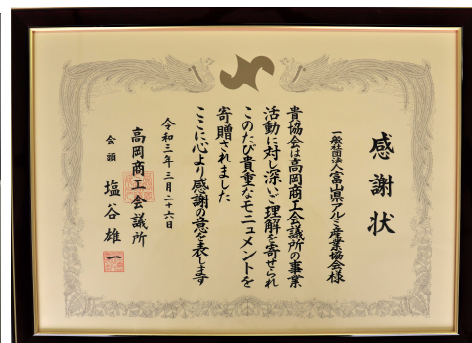 感謝状
一般社団法人富山県アルミ産業協会様
貴協会は高岡商工会議所の事業
活動に対し深いご理解を寄せられ
このたび貴重なモニュメントを
寄贈されました
ここに心より感謝の意を表します
令和三年三月二十六日
高岡商工会議所
会頭 塩谷雄一